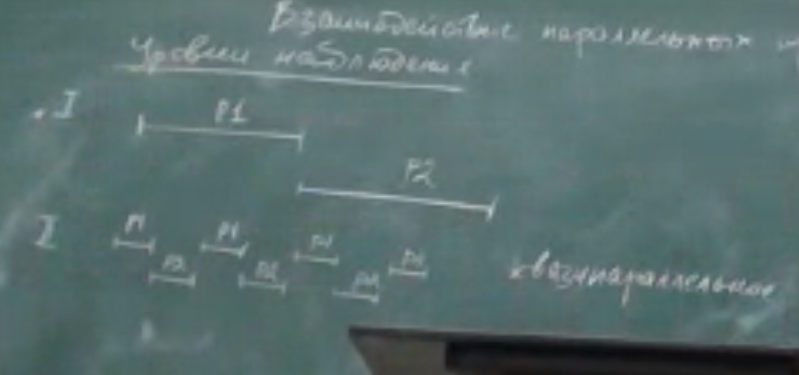 Взаимодействие параллельных
Уровни наблюдения
I P1
P2
I P1 P1 P1 P1
P2 P2 P2
квазипараллельное